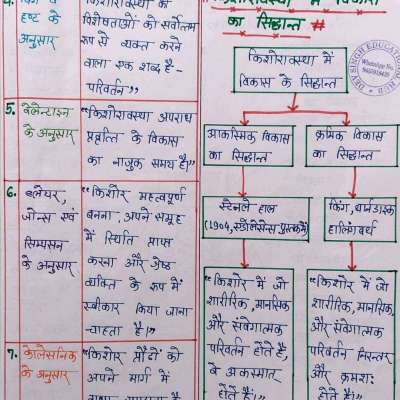 हृष्ट के
अनुसार
विशेषताओं को सर्वोत्तम
रूप से व्यक्त करने
वाला एक शब्द है-
परिवर्तन"
5. वेलेन्टाइन
के अनुसार
"किशोरावस्था अपराध
प्रवृत्ति के विकास
का नाजुक समय है।"
6. ब्लेयर,
जोन्स एवं
सिम्पसन
के अनुसार
"किशोर महत्वपूर्ण
बनना, अपने समूह
में स्थिति प्राप्त
करना और श्रेष्ठ
व्यक्ति के रूप में
स्वीकार किया जाना
चाहता है।"
7. कोलेसनिक
के अनुसार
"किशोर प्रौढों को
अपने मार्ग में
का सिद्धान्त #
किशोरावस्था में
विकास के सिद्धान्त
आकस्मिक विकास
का सिद्धान्त
क्रमिक विकास
का सिद्धान्त
स्टेनले हाल
(1904, एडोलेसेन्स पुस्तक में)
किंग, थार्नडाइक
हालिंगवर्थ
"किशोर में जो
शारीरिक, मानसिक
और संवेगात्मक
परिवर्तन होते है,
वे अकस्मात
होते है।"
"किशोर में जो
शारीरिक, मानसिक,
और संवेगात्मक
परिवर्तन निरन्तर
और क्रमशः
होते है।"